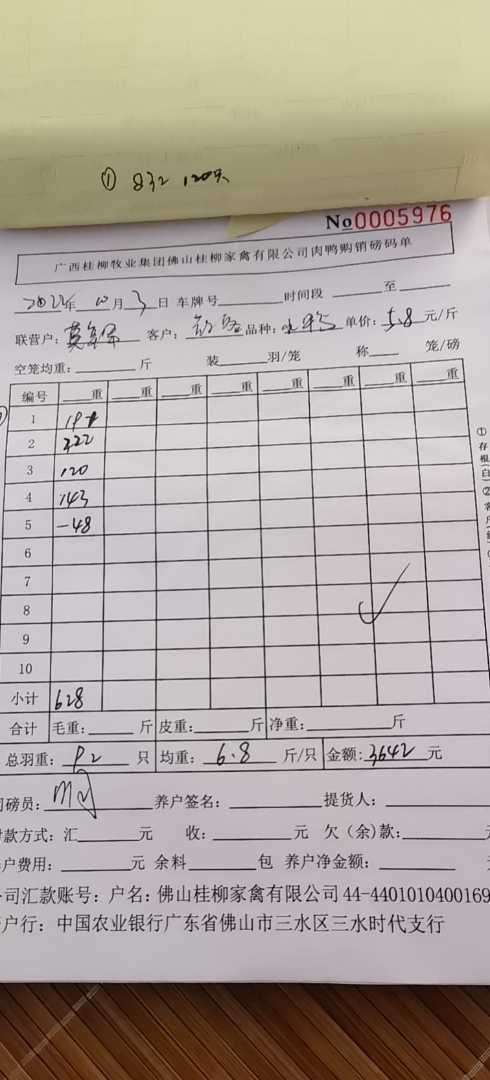 ① 832 120只
No0005976
广西桂柳牧业集团佛山桂柳家禽有限公司肉鸭购销磅码单
年 10月3日 车牌号 时间段 至
联营户: 客户: 品种: 单价: 5.8 元/斤
空笼均重: 斤 装 羽/笼 称 笼/磅
编号 重 重 重 重 重 重 重
1
2 222
3 120
4 143
5 -48
6
7
8
9
10
小计 628
合计 毛重: 斤 皮重: 斤 净重: 斤
总羽重: 92 只 均重: 6.8 斤/只 金额: 3642 元
磅员: 养户签名: 提货人:
款方式: 汇 元 收: 元 欠(余)款:
户费用: 元 余料 包 养户净金额:
司汇款账号: 户名: 佛山桂柳家禽有限公司 44-4401010400169
户行: 中国农业银行广东省佛山市三水区三水时代支行
① 存根(白) ②